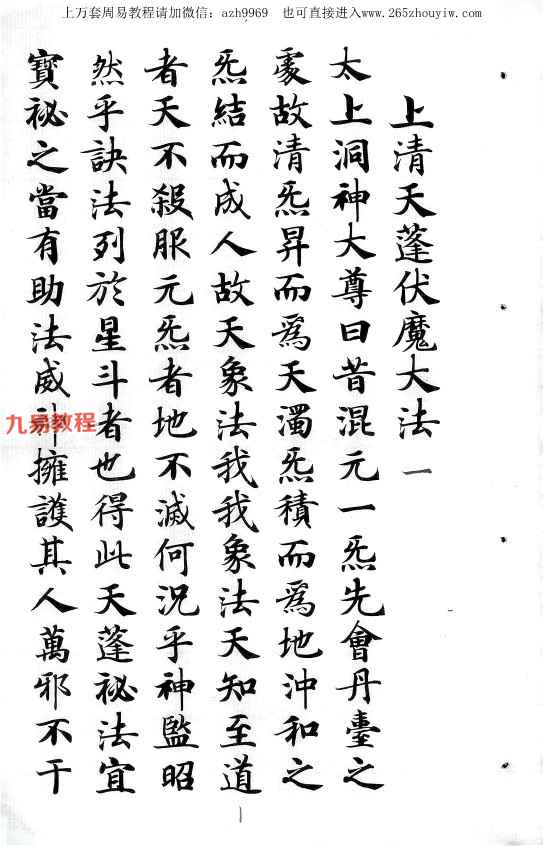 上万套周易教程请加微信：azh9969　也可直接进入www.265zhouyiw.com
上清天蓬伏魔大法一
太上洞神大尊曰昔混元一炁先會丹臺之
處故清炁昇而爲天濁炁積而爲地沖和之
炁結而成人故天象法我我象法天知至道
者天不殺服元炁者地不滅何況乎神監昭
然乎訣法列於星斗者也得此天蓬祕法宜
寶祕之當有助法威神擁護其人萬邪不干
九易教程
1